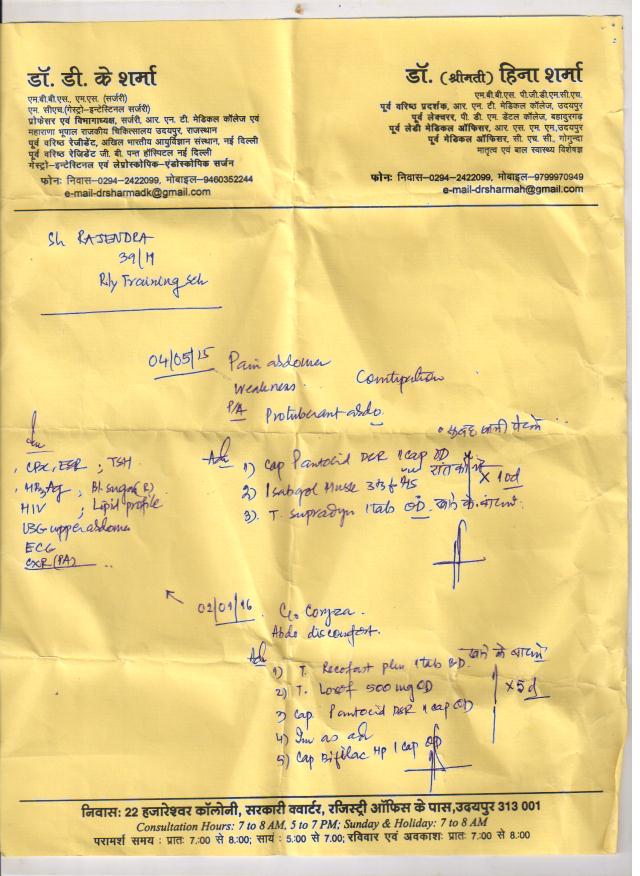 डॉ. डी. के शर्मा
एम.बी.बी.एस., एम.एस. (सर्जरी)
एम. सीएच.(गेस्ट्रो-इन्टेस्टिनल सर्जरी)
प्रोफेसर एवं विभागाध्यक्ष, सर्जरी, आर. एन. टी. मेडिकल कॉलेज एवं
महाराणा भूपाल राजकीय चिकित्सालय उदयपुर, राजस्थान
पूर्व वरिष्ठ रेजीडेंट, अखिल भारतीय आयुर्विज्ञान संस्थान, नई दिल्ली
पूर्व वरिष्ठ रेजिडेंट जी. बी. पन्त हॉस्पिटल नई दिल्ली
गेस्ट्रो-इन्टेस्टिनल एवं लेप्रोस्कोपिक-एंडोस्कोपिक सर्जन
फोनः निवास-0294-2422099, मोबाइल-9460352244
e-mail-drsharmadk@gmail.com
डॉ. (श्रीमती) हिना शर्मा
एम.बी.बी.एस. पी.जी.डी.एम.सी.एच.
पूर्व वरिष्ठ प्रदर्शक, आर. एन. टी. मेडिकल कॉलेज, उदयपुर
पूर्व लेक्चरर, पी. डी. एम. डेंटल कॉलेज, बहादुरगढ़
पूर्व लेडी मेडिकल ऑफिसर, आर. एस. एम. एम.,उदयपुर
पूर्व मेडिकल ऑफिसर, सी. एच. सी., गोगुन्दा
मातृत्व एवं बाल स्वास्थ्य विशेषज्ञ
फोनः निवास-0294-2422099, मोबाइल-9799970949
e-mail-drsharmah@gmail.com
Sh RAJENDRA
39/M
Rly Training Sch
04/05/15 Pain abdomen
weakness. Constipation
P/A Protuberant abdo
CBC, ESR ; TSH
HBsAg ; Bl. sugar (R)
HIV ; Lipid profile
USG upper abdomen
ECG
CXR (PA)
Adv 1) Cap Pantocid DSR 1 cap OD
2) Isabgol Husk 3 tsf HS x 10d
3). T. Supradyn 1 tab OD. खाने के बाद
02/01/16 C/o Coryza.
Abdo discomfort.
Adv खाने के बाद में
1) T. Recofast plus 1 tab BD.
2) T. Loxof 500 mg OD x 5d
3) Cap Pantocid DSR 1 cap OD
4)
5) Cap Bifilac HP 1 cap OD
निवास: 22 हजारेश्वर कॉलोनी, सरकारी क्वार्टर, रजिस्ट्री ऑफिस के पास,उदयपुर 313 001
Consultation Hours: 7 to 8 AM, 5 to 7 PM; Sunday & Holiday: 7 to 8 AM
परामर्श समय : प्रातः 7.00 से 8.00; सायं : 5.00 से 7.00; रविवार एवं अवकाशः प्रातः 7.00 से 8.00